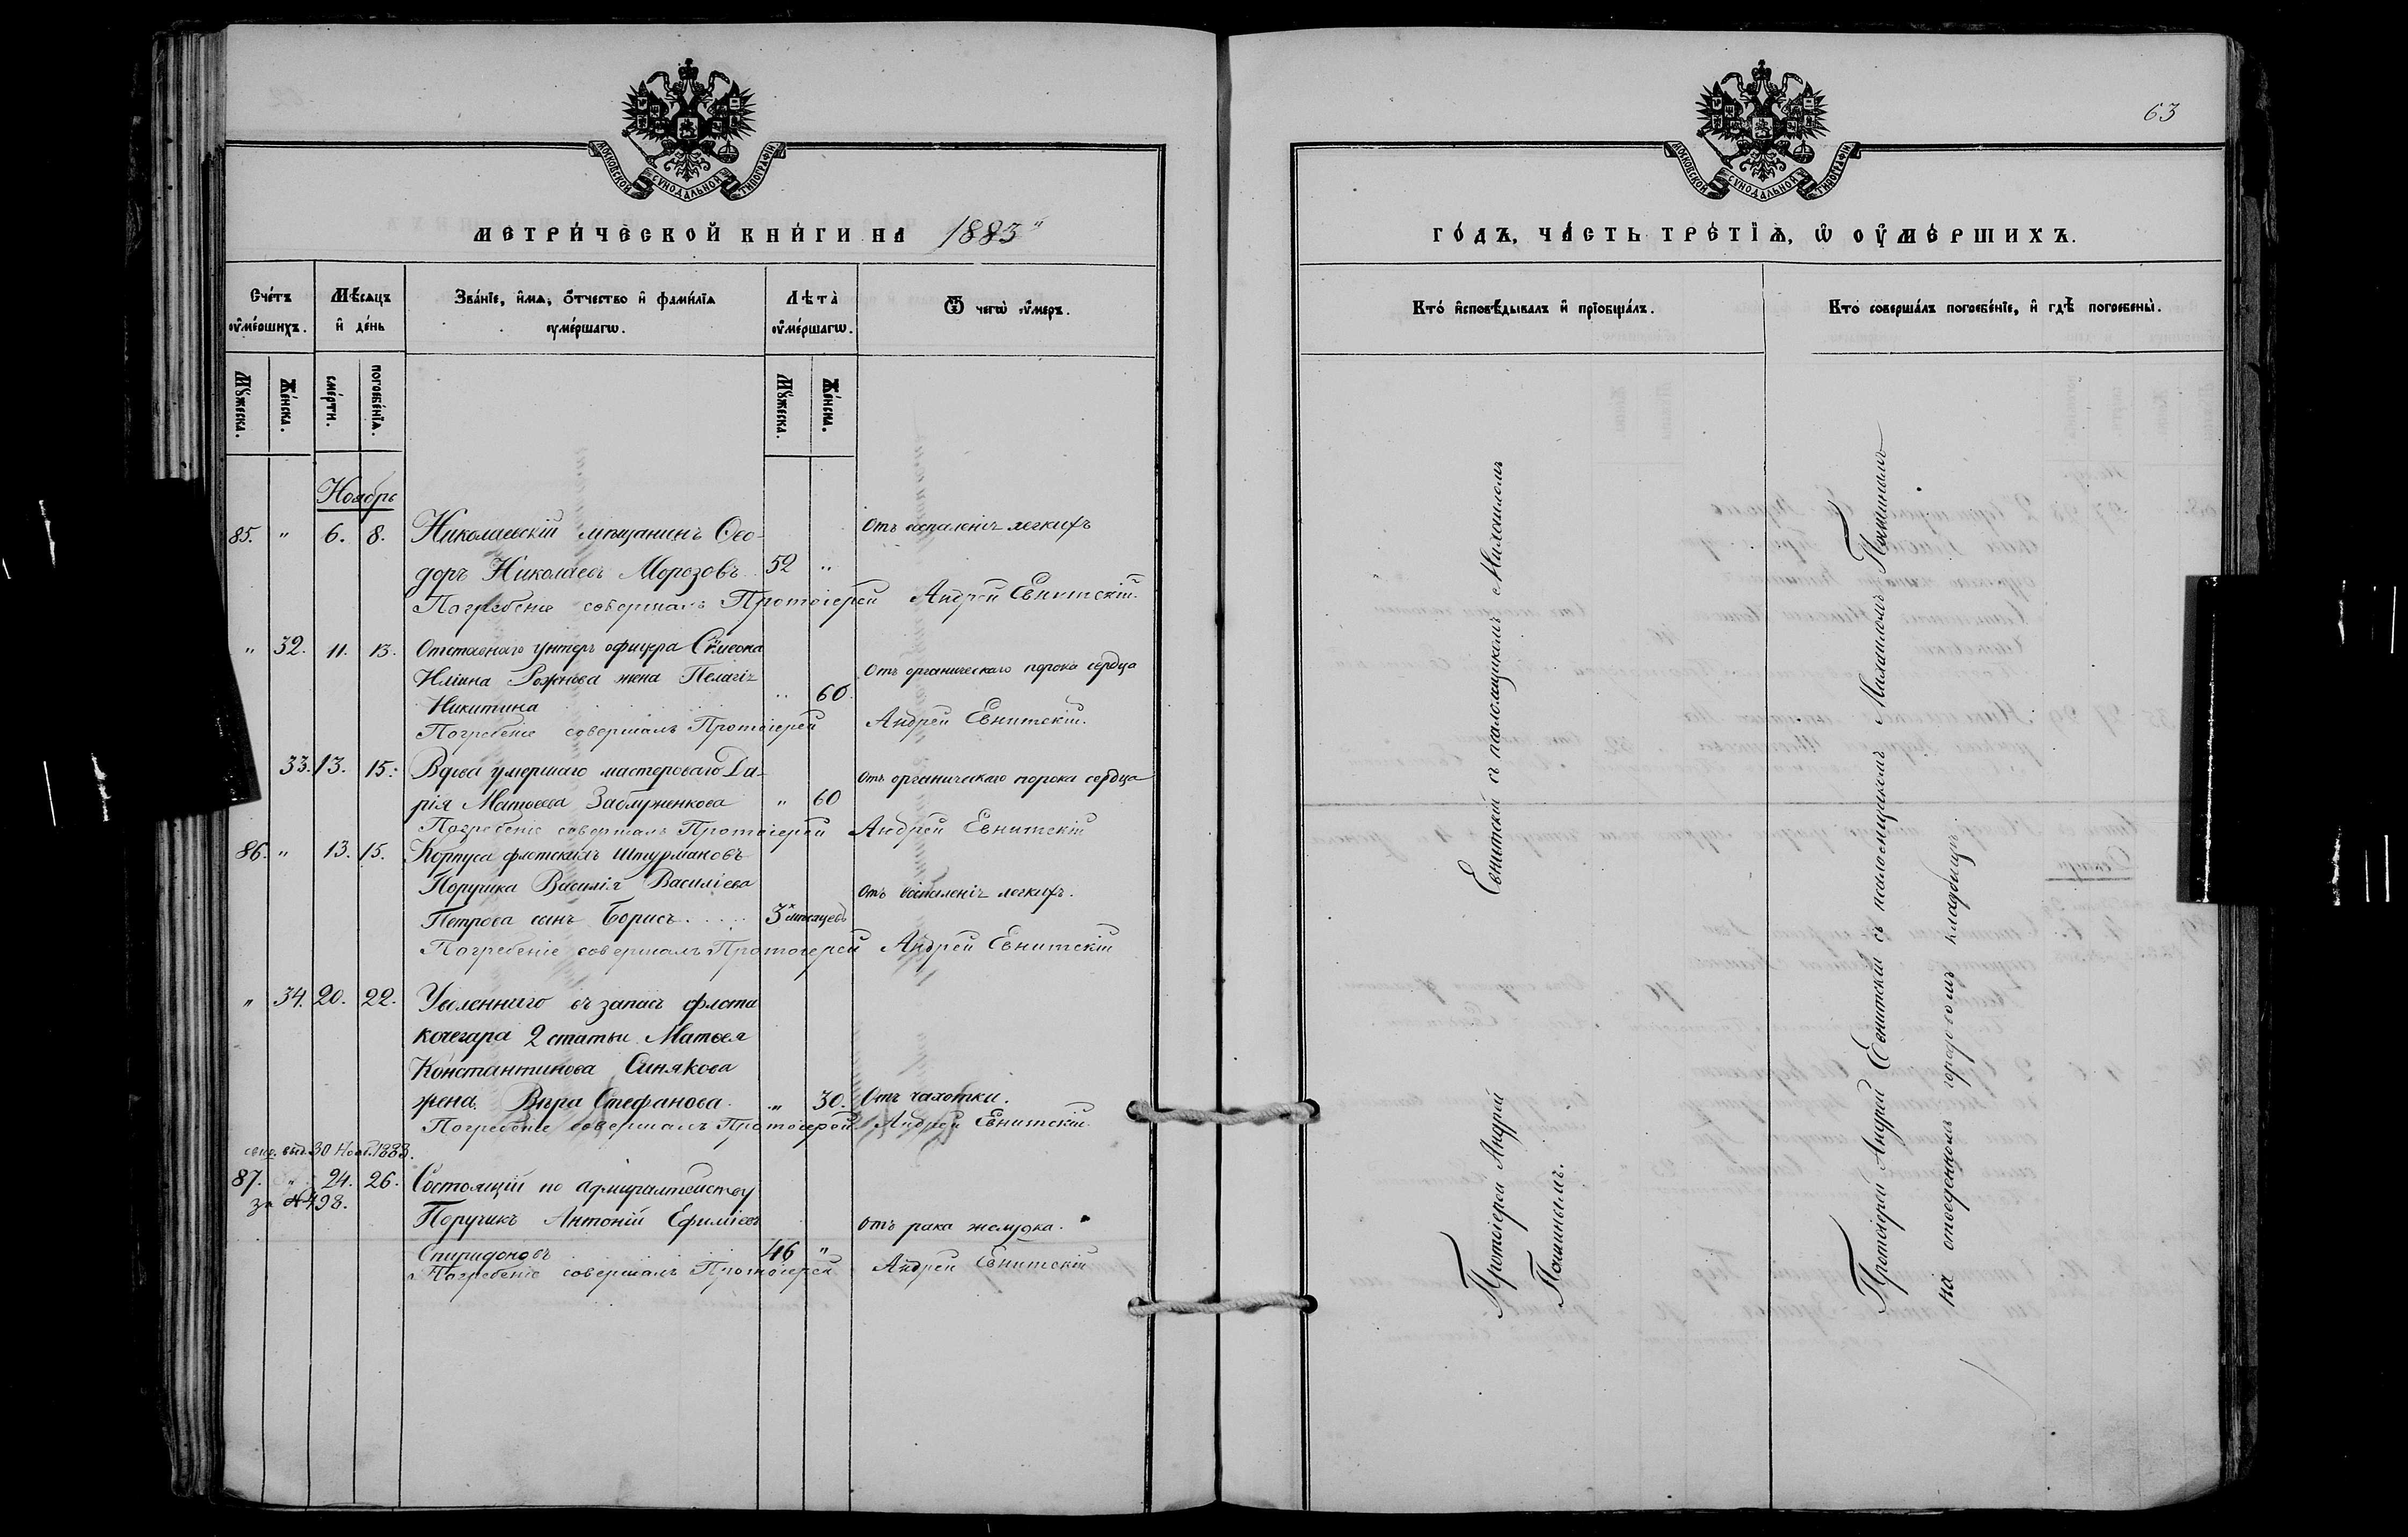 МОСКОВСКОЙ СѴНОДАЛЬНОЙ ТИПОГРАФІИ
МЕТРИ́ЧЕСКОЙ КНИ́ГИ НА 1883"
Сче́тъ ᲂу҆ме́ршихъ.
Мѣ́сяцъ и҆ де́нь
Зва́нїе, и҆́мя, ѻ҆́тчество и҆ фами́лїя ᲂуме́ршагѡ.
Лѣта̀ ᲂу҆ме́ршагѡ.
Ѿ чегѡ̀ ᲂу҆́меръ.
Мꙋ́жеска.
Же́нска.
сме́рти.
погребе́нїя.
Мꙋ́жеска.
Же́нска.
Ноябрь
85. " 6. 8. Николаевскій мѣщанинъ Ѳео-
Отъ воспаленія легкихъ
доръ Николаевъ Морозовъ 52 "
Погребеніе совершалъ Протоіерей Андрей Евнитскій.
" 32. 11. 13. Отставнаго унтеръ офицера Сѵмеона
Иліина Рожнова жена Пелагія
Отъ органическаго порока сердца
Никитина " 60.
Погребеніе совершалъ Протоіерей Андрей Евнитскій.
33. 13. 15. Вдова умершаго мастероваго Да-
Отъ органическаго порока сердца
рія Матѳеева Заблуженкова " 60
Погребеніе совершалъ Протоіерей Андрей Евнитскій
86. " 13. 15. Корпуса флотскихъ штурмановъ
Поручика Василія Василіева
Отъ воспаленія легкихъ.
Петрова сынъ Борисъ. 3х мѣсяцевъ
Погребеніе совершалъ Протоіерей Андрей Евнитскій
" 34. 20. 22. Уволеннаго въ запасъ флота
кочегара 2 статьи Матѳея
Константинова Синякова
жена Вѣра Стефанова. " 30. Отъ чахотки.
Погребеніе совершалъ Протоіерей Андрей Евнитскій.
выд. 30 Нояб. 1883.
87. " 24. 26. Состоящій по адмиралтейству
за № 498.
Поручикъ Антоній Ефиміевъ
отъ рака желудка.
Спиридоновъ 46 "
Погребеніе совершалъ Протоіерей Андрей Евнитскій
63
МОСКОВСКОЙ СѴНОДАЛЬНОЙ ТИПОГРАФІИ
ГО́ДЪ, ЧА́СТЬ ТРЕ́ТЇЯ, Ѡ҆ ОУ҆МЕ́РШИХЪ.
Кто̀ и҆сповѣ́дывалъ и҆ прїобща́лъ.
Кто̀ соверша́лъ погребе́нїе, и҆ гдѣ̀ погребены̀.
Протоіерей Андрей Евнитскій съ псаломщикомъ Михаиломъ
Пашинымъ.
Протоіерей Андрей Евнитскій съ псаломщикомъ Михаиломъ Пашинымъ
на отведенномъ городскомъ кладбищѣ.